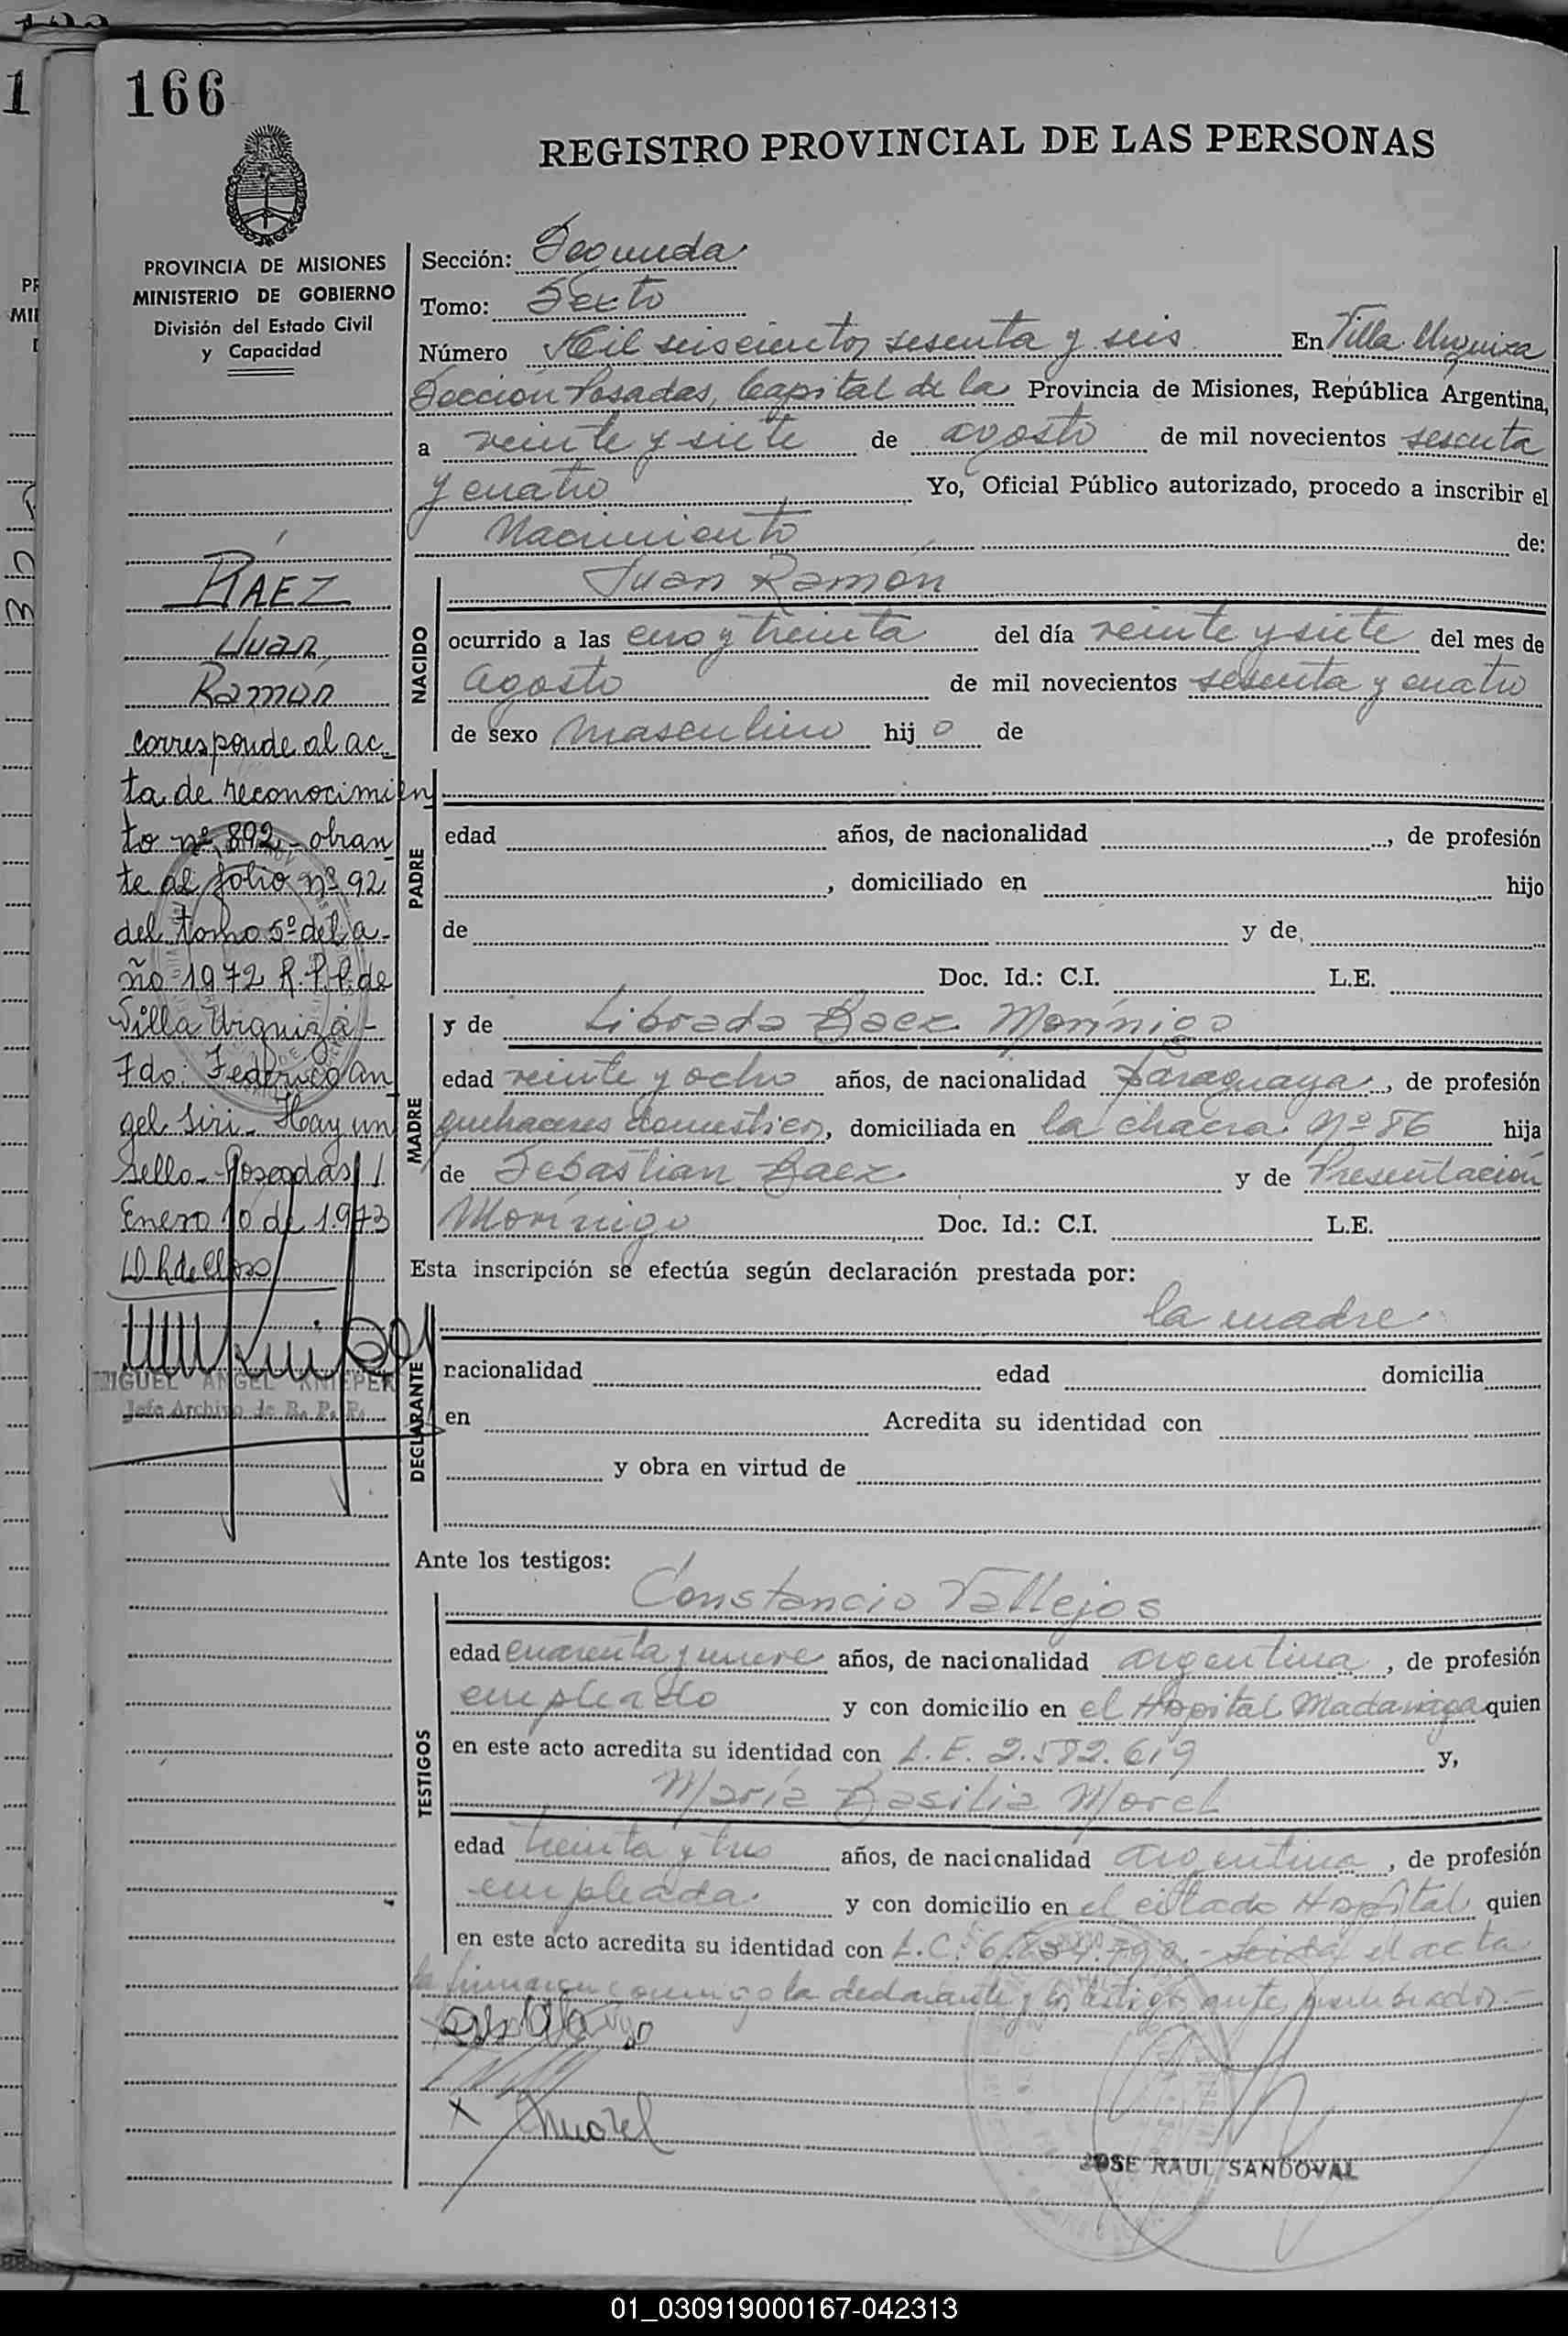 166
REGISTRO PROVINCIAL DE LAS PERSONAS
PROVINCIA DE MISIONES
MINISTERIO DE GOBIERNO
División del Estado Civil
y Capacidad
BAEZ
Juan
Ramón
corresponde al ac-
ta de reconocimien
to nº 892 - obran
te al folio nº 92
del tomo 5º del a-
ño 1972 R.P.P. de
Villa Urquiza -
Fdo: Federico An
gel Siri - Hay un
sello - Posadas,
Enero 10 de 1973
MIGUEL ANGEL KNIEPER
Jefe Archivo de R. P. P.
Sección: Segunda
Tomo: Sexto
Número Mil seiscientos sesenta y seis En Villa Urquiza
Seccion Posadas, Capital de la Provincia de Misiones, República Argentina,
a veinte y siete de agosto de mil novecientos sesenta
y cuatro Yo, Oficial Público autorizado, procedo a inscribir el
Nacimiento de:
NACIDO
Juan Ramón
ocurrido a las cero y treinta del día veinte y siete del mes de
agosto de mil novecientos sesenta y cuatro
de sexo masculino hijo de
PADRE
edad años, de nacionalidad , de profesión
, domiciliado en hijo
de y de
Doc. Id.: C.I. L.E.
MADRE
y de Librada Baez Morínigo
edad veinte y ocho años, de nacionalidad paraguaya, de profesión
quehaceres domesticos, domiciliada en la chacra nº 86 hija
de Sebastian Baez y de Presentación
Morínigo Doc. Id.: C.I. L.E.
Esta inscripción se efectúa según declaración prestada por:
DECLARANTE
la madre
nacionalidad edad domicilia
en Acredita su identidad con
y obra en virtud de
Ante los testigos:
TESTIGOS
Constancio Vallejos
edad cuarenta y nueve años, de nacionalidad argentina, de profesión
empleado y con domicilio en el Hospital Madariaga quien
en este acto acredita su identidad con L.E. 2.582.619 y,
María Basilia Morel
edad treinta y tres años, de nacionalidad argentina, de profesión
empleada y con domicilio en el citado Hospital quien
en este acto acredita su identidad con L.C. - Leida el acta
la firman conmigo la declarante y los testigos ante nombrados.-
Morel
JOSE RAUL SANDOVAL
01_030919000167-042313